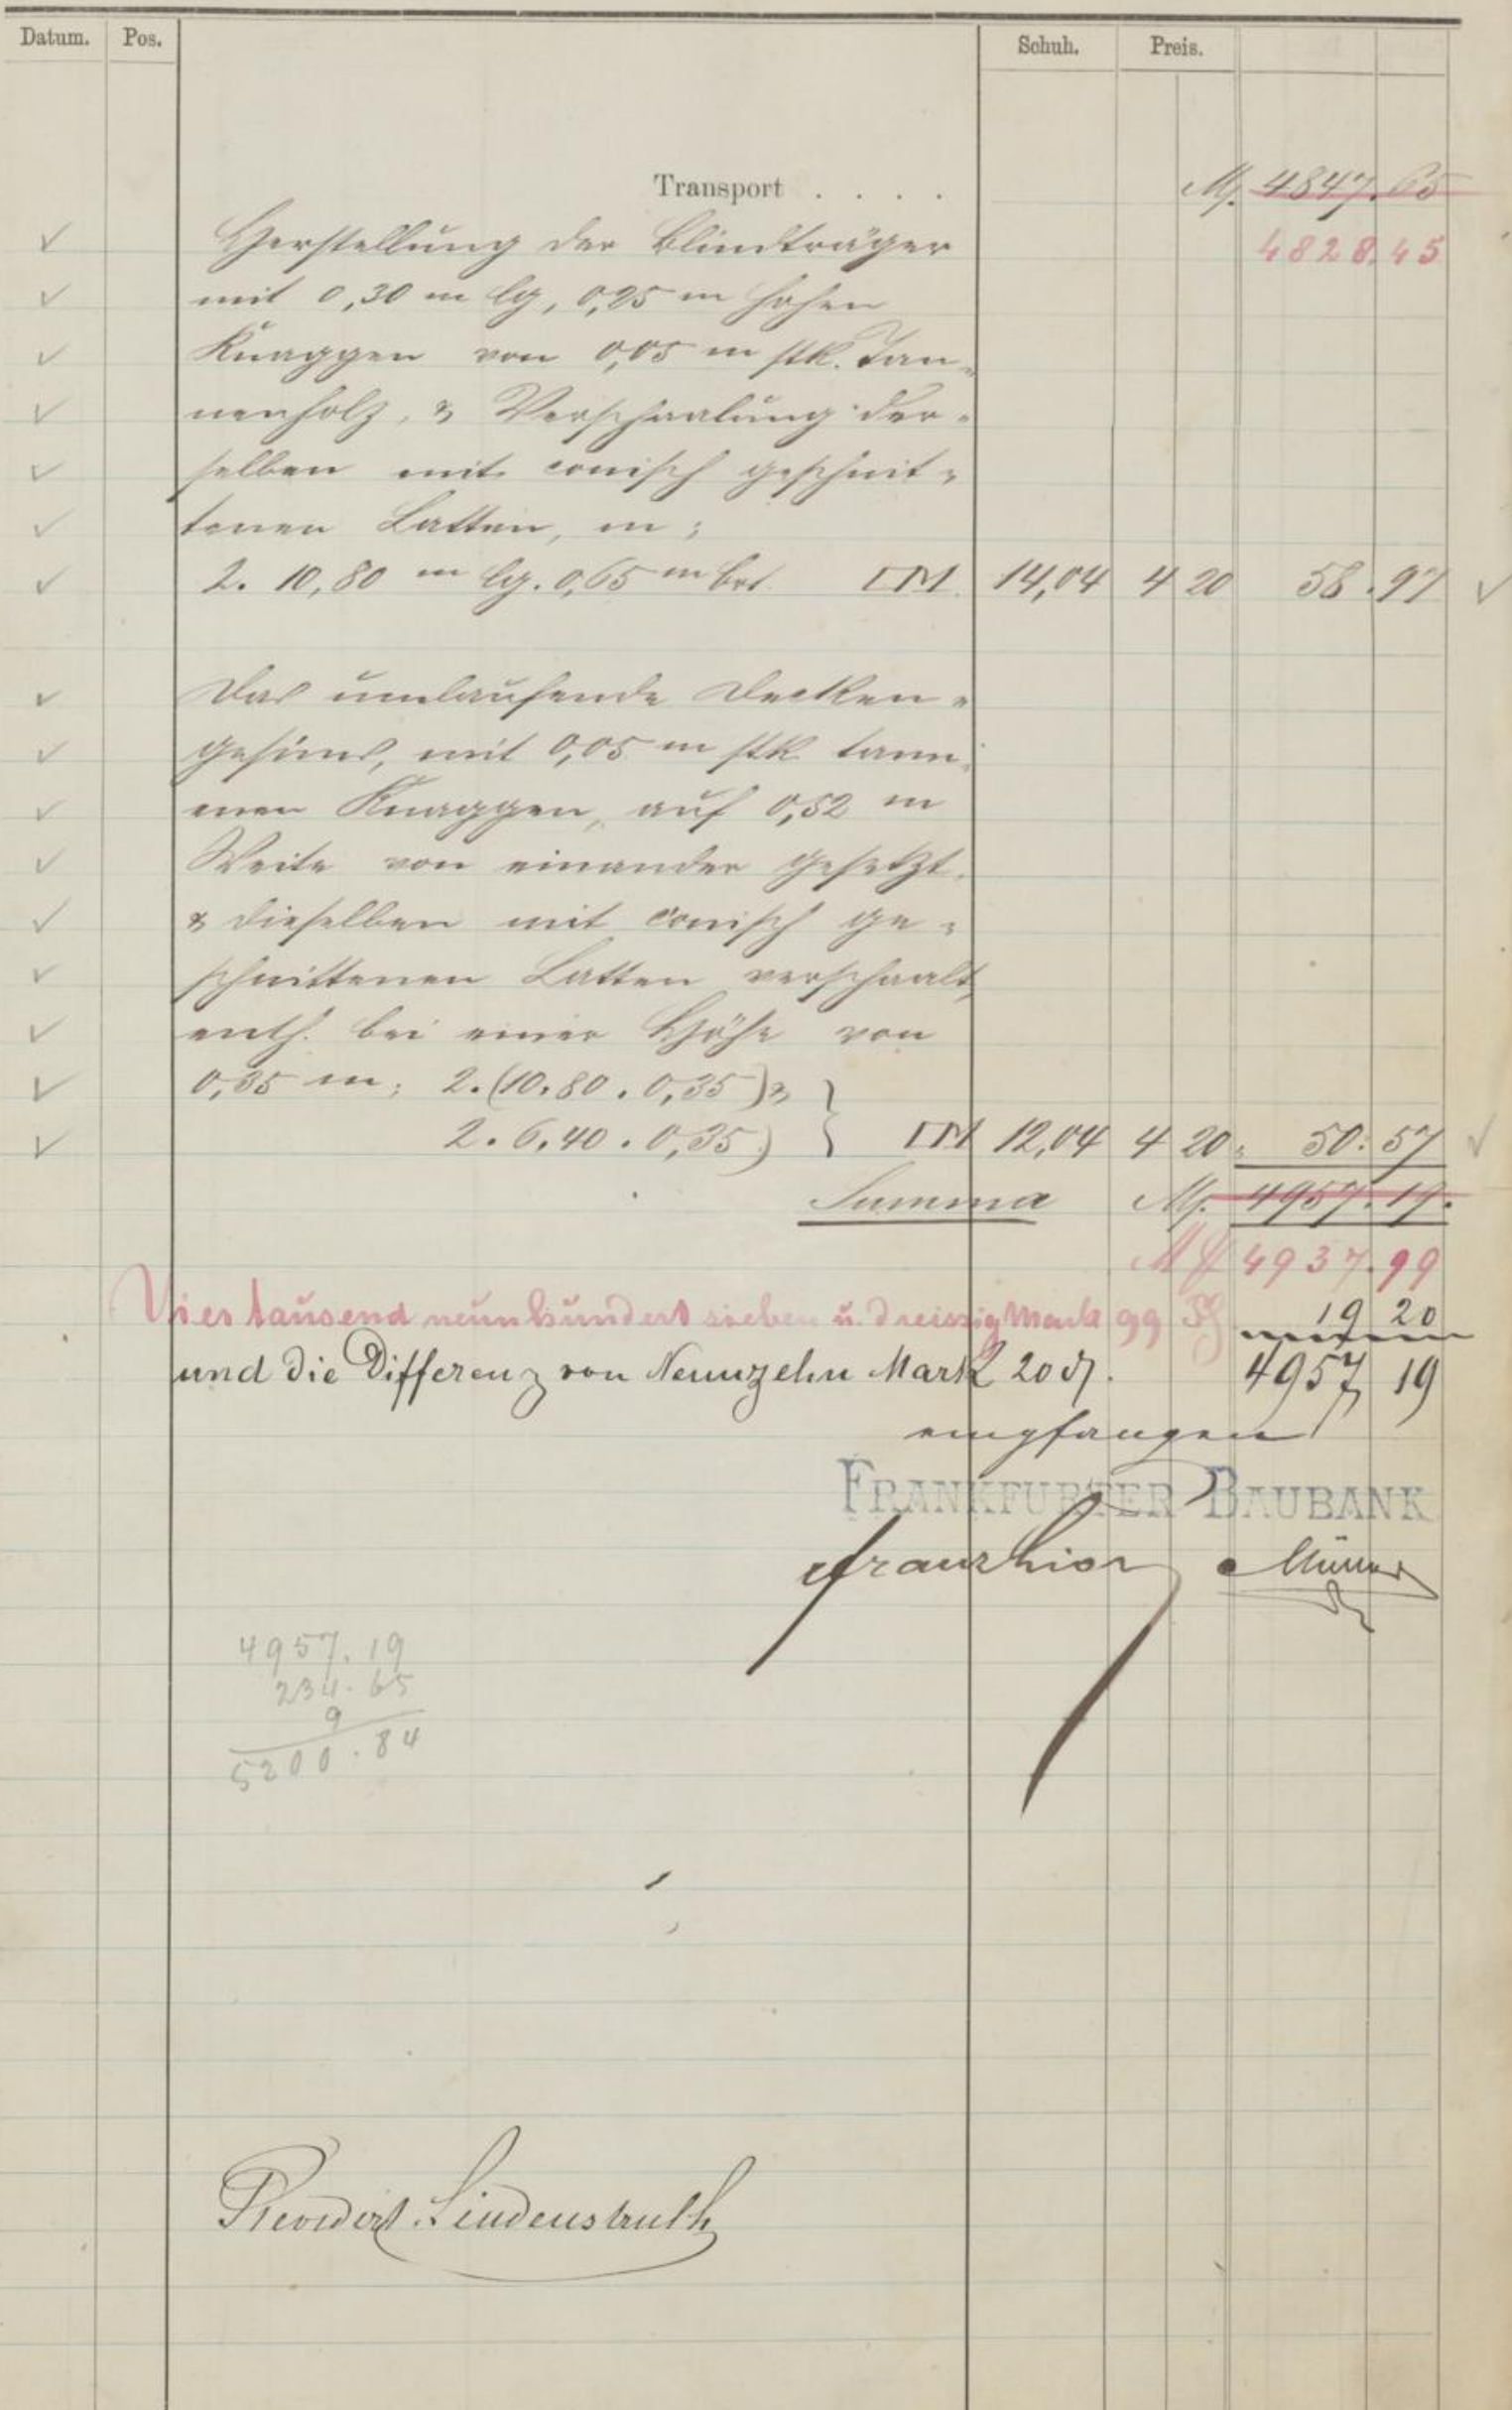 Datum. Pos. Schuh. Preis.
Transport . . . . M. 4847.65
4828.45
Herstellung der Blindträger
mit 0,30 m lg, 0,25 m hohen
Knaggen von 0,05 m stk. Tan-
nenholz, & Verschaalung der-
selben mit conisch geschnit-
tenen Latten, m:
2. 10,80 m lg. 0,65 m brt. □M. 14,04 4 20 58.97
Das umlaufende Decken-
gesims, mit 0,05 m stk tann-
enen Knaggen, auf 0,52 m
Weite von einander gesetzt,
& dieselben mit conisch ge-
schnittenen Latten verschaalt,
enth. bei einer Höhe von
0,35 m; 2.(10.80 . 0,35) &
2. 6,40 . 0,35) } □M 12,04 4 20 50.57
Summa M. 4957.19.
M 4937.99
Viertausend neunhundert sieben u. dreissig Mark 99 Pf
19 20
und die Differenz von Neunzehn Mark 20 ₰. 4957 19
empfangen
FRANKFURTER BAUBANK
Müller
4957.19
234.65
9
5200.84
Revidirt. Lindenstruth